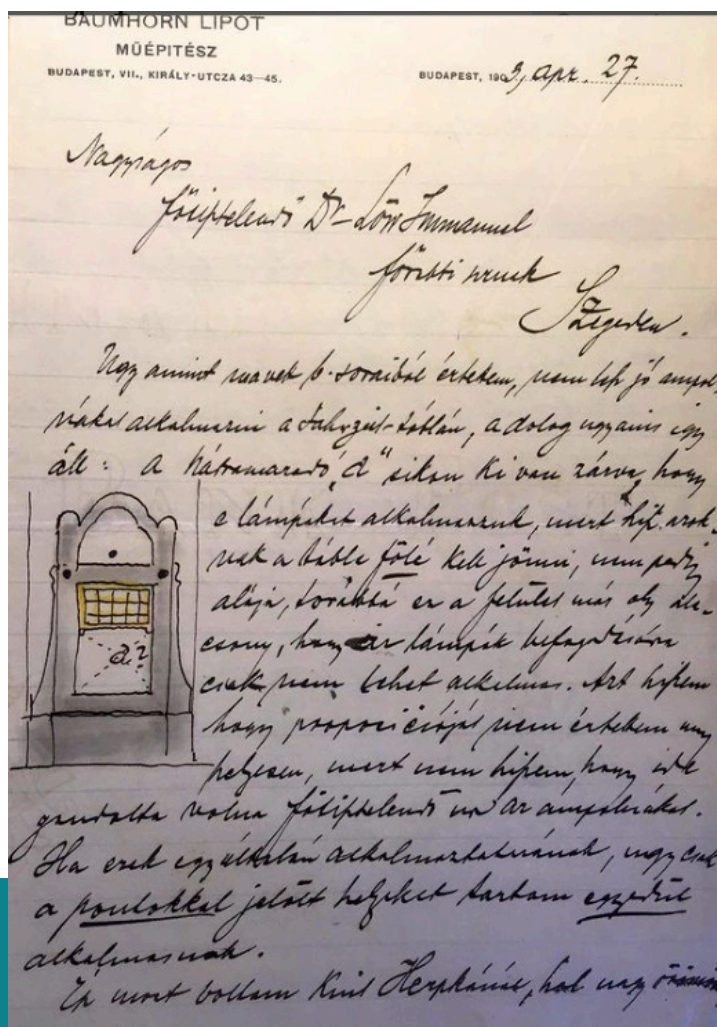 BAUMHORN LIPÓT
MŰÉPITÉSZ
BUDAPEST, VII., KIRÁLY-UTCZA 43—45.
BUDAPEST, 1903, apr. 27.
Nagyságos
főtiszteletű Dr. Löw Immanuel
főrabbi úrnak
Szegeden.
Ugy amint b. soraiból értem, nem jó
alkalmazni a táblán, a dolog ugyanis igy
áll: A hátramaradó „d" sikon ki van zárva, hogy
e lámpákat alkalmazzuk, mert azok-
nak a tábla fölé kell jönni, nem pedig
alája, továbbá ez a felület már oly ala-
csony, hogy az lámpák befogadására
csak nem lehet alkalmas. Azt hiszem
d.?
hogy propositióját nem értettem meg
helyesen, mert nem hiszem, hogy ide
gondolta volna úr az ampolnákat.
Ha ezek egyáltalán alkalmaztatnának, ugy csak
a pontokkal jelölt helyeket tartom egyedül
alkalmasnak.
Ép most voltam hol nagy